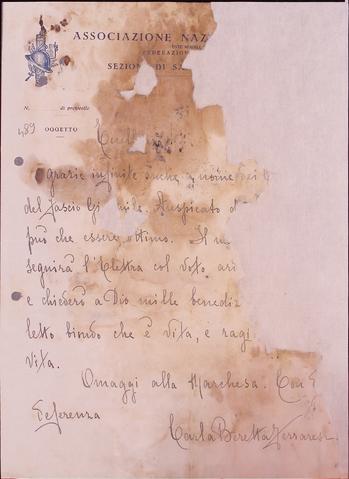 ASSOCIAZIONE NAZ
ENTE MORALE
FEDERAZION
SEZION DI S
N. di protocollo
489 OGGETTO
grazie infinite anche a nome dei
del fascio Gi ile. Auspicato d
può che essere ottimo. Il
seguirà l'Elettra col voto,
e chiederò a Dio mille benediz
letto bimbo che è vita, e ragi
vita.
Omaggi alla Marchesa. Con
deferenza
Carla Beretta Ferraresi